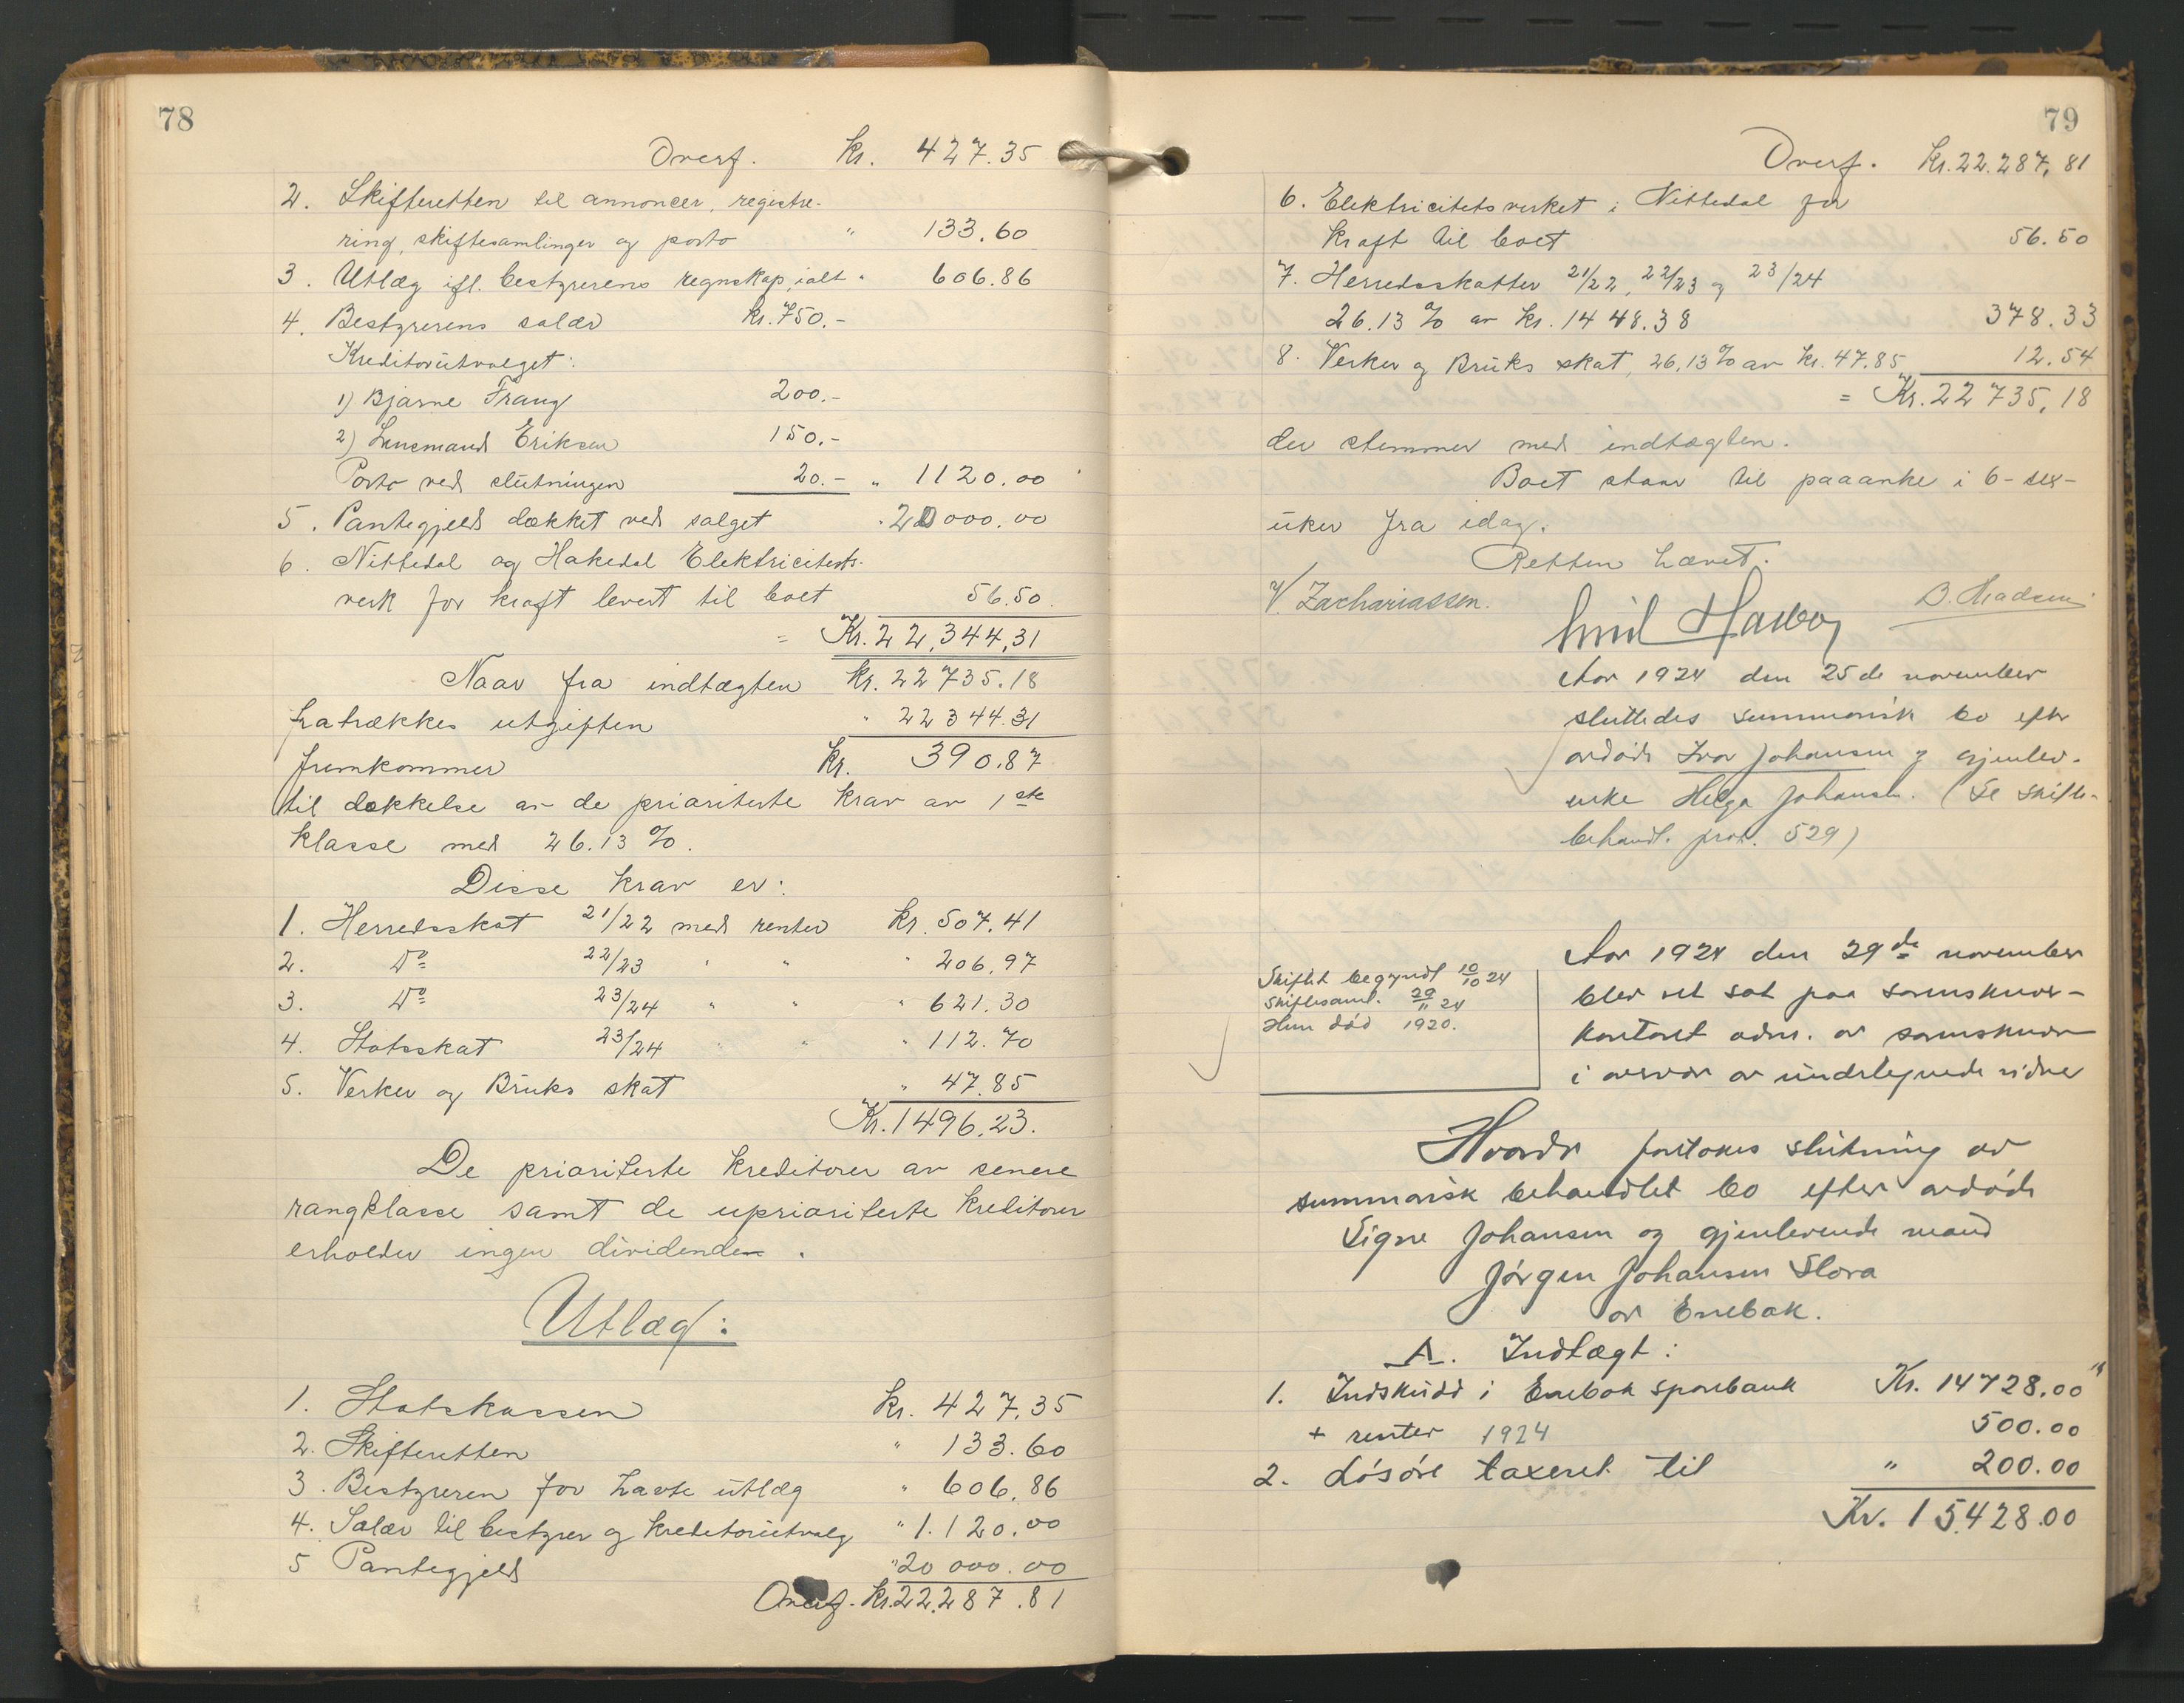 78
Overf. kr. 427.35
2. Skifteretten til annoncer, registre-
ring, skiftesamlinger og porto " 133.60
3. Utlæg ifl. bestyrerens regnskap, ialt " 606.86
4. Bestyrerens salær kr. 750.-
Kreditorutvalget:
1) Bjarne Frang 200.-
2) Lensmand Eriksen 150.-
Porto ved slutningen 20.- " 1120.00
5. Pantegjeld dækket ved salget " 20000.00
6. Nittedal og Hakedal Elektricitets-
verk for kraft levert til boet 56.50
= Kr. 22,344,31
Naar fra indtægten kr. 22735.18
fratrækkes utgiften " 22344.31
fremkommer Kr. 390.87
til dækkelse av de prioriterte krav av 1ste
klasse med 26.13 %.
Disse krav er:
1. Herredsskat 21/22 med renter kr. 507.41
2. Do 22/23 " " " 206.97
3. Do 23/24 " " " 621.30
4. Statsskat 23/24 " " " 112.70
5. Verker og Bruks skat " 47.85
Kr. 1496.23.
De prioriterte kreditorer av senere
rangklasse samt de uprioriterte kreditorer
erholder ingen dividende.
Utlæg:
1. Statskassen kr. 427.35
2. Skifteretten " 133.60
3. Bestyreren for havte utlæg " 606.86
4. Salær til bestyrer og kreditorutvalg " 1.120.00
5 Pantegjeld " 20 000.00
Overf. kr. 22.287.81
79
Overf. kr. 22.287,81
6. Elektricitetsverket i Nittedal for
kraft til boet 56.50
7. Herredsskatter 21/22, 22/23 og 23/24
26.13 % av kr. 1448.38 378.33
8. Verker og Bruks skat, 26.13 % av kr. 47.85 12.54
= Kr. 22735,18
der stemmer med indtægten.
Boet staar til paaanke i 6-sex-
uker fra idag.
Retten hævet.
V. Zachariassen. Emil B. Madsen
Aar 1924 den 25de november
sluttedes summarisk bo efter
avdøde Ivar Johansen og gjenlev.
enke Helga Johansen. (Se Skifte-
behandl. prot. 529)
Skiftet begyndt 10/10 24
Skiftesaml. 29/11 24
Hun død 1920.
Aar 1924 den 29de november
blev ret sat paa sorenskriver-
kontoret adm. av sorenskriver
i overvær av undertegnede vidner
Hvorda foretokes slutning av
summarisk behandlet bo efter avdøde
Signe Johansen og gjenlevende mand
Jørgen Johansen Slora
av Enebak.
A. Indtægt:
1. Indskudd i Enebak sparebank Kr. 14728.00 "
+ renter 1924 500.00
2. Løsøre taxeret til " 200.00
Kr. 15428.00